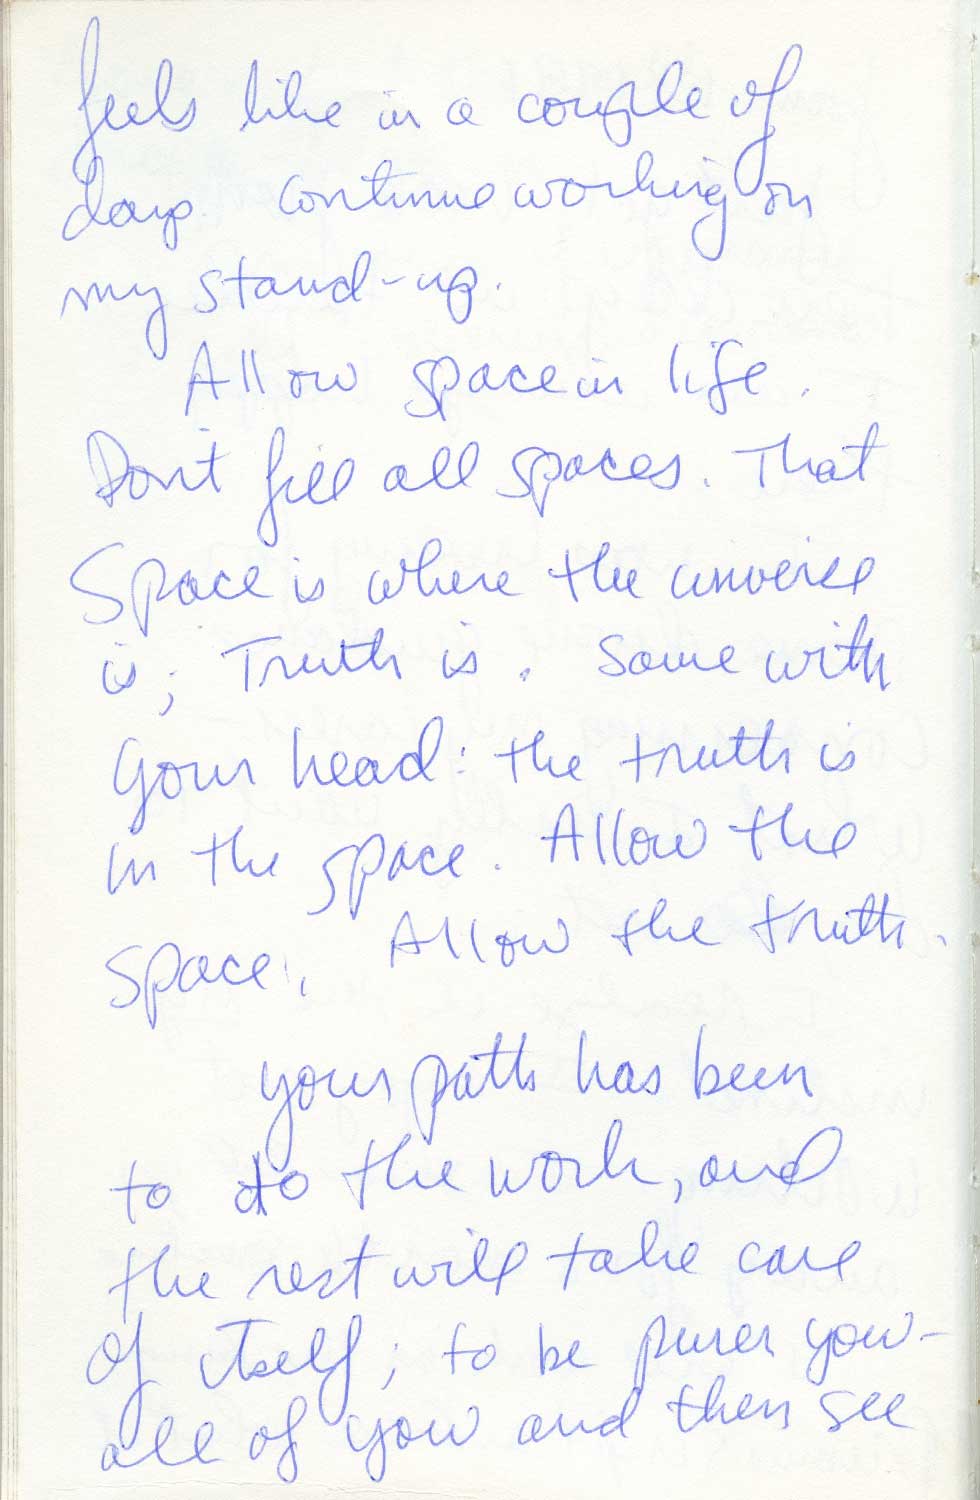 feels like in a couple of
days. Continue working on
my stand-up.
Allow space in life.
Don't fill all spaces. That
Space is where the universe
is; Truth is. Same with
your head: the truth is
in the space. Allow the
space. Allow the truth.
your path has been
to do the work, and
the rest will take care
of itself; to be purer you-
all of you and then see